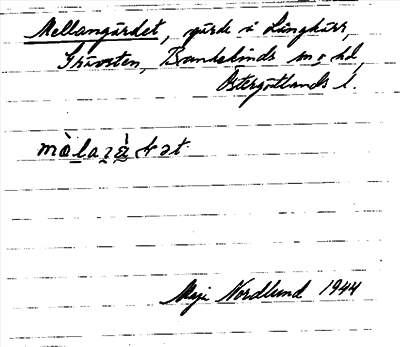 Mellangärdet, gärde i Långkärr,
Gryten, Bankekinds sn o hd,
Östergötlands l.
Maji Nordlund 1944